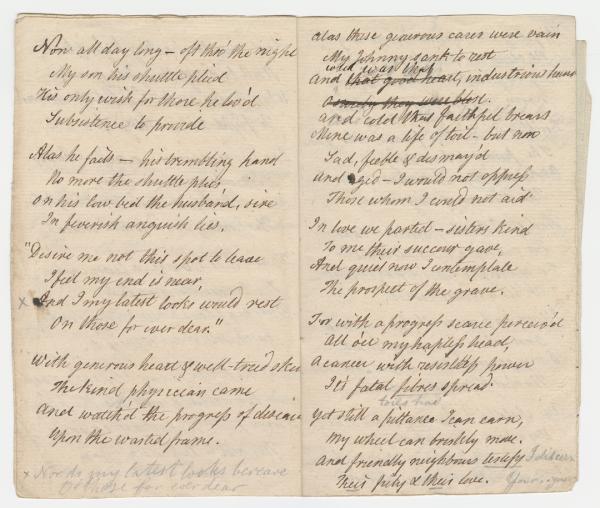 Now all day long – oft thro' the night
My son his shuttle plied
His only wish for those he lov'd
Subsistence to provide
Alas he fails – his trembling hand
No more the shuttle plies
On his low bed the husband, sire
In feverish anguish lies.
"Desire me not this spot to leave
I feel my end is near,
x And I my latest looks would rest
On those for ever dear."
With generous heart & well-tried skill
The kind physician came
And watch'd the progress of disease
Upon the wasted frame.
x Nor do my latest looks bereave
Of those for ever dear
Alas these generous cares were vain
My Johnny sank to rest
cold was that
And that good heart, industrious hand
And cold that faithful breast
Mine was a life of toil – but now
Sad, feeble & dismay'd
And aged – I would not oppress
Those whom I could not aid
In love we parted – sisters kind
To me their succour gave,
And quiet now I contemplate
The prospect of the grave.
For with a progress scarce perceiv'd
All o'er my hapless head,
A cancer with resistless power
Its fatal fibres spread.
Yet still a pittance I can earn,
My wheel can briskly move.
And friendly neighbours testify
Their pity & their love. Your